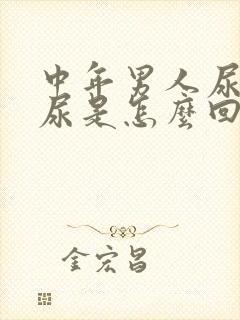 中年男人尿
尿是怎麼回
金宏昌